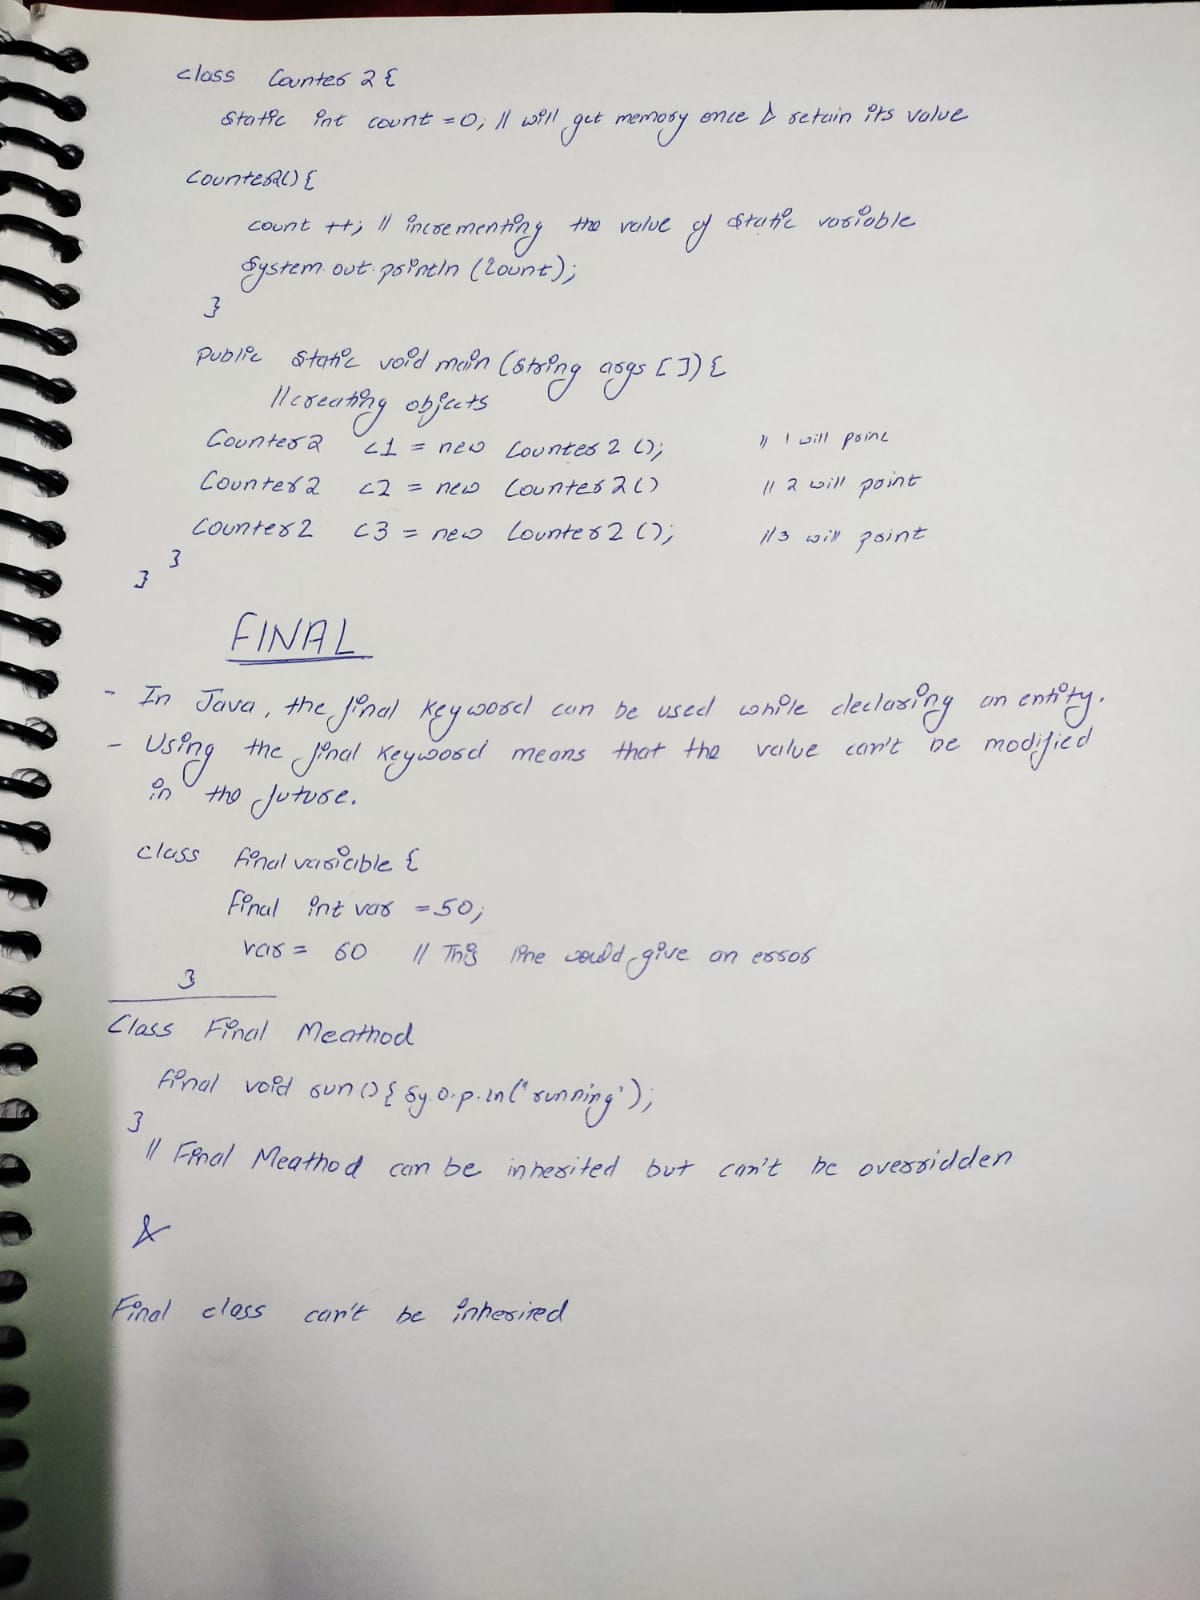 class Counter 2 {
static int count = 0; // will get memory once & retain its value
Counter2() {
count ++; // incrementing the value of static variable
System.out.println (Count);
}
Public static void main (String args [ ]) {
// creating objects
Counter2 c1 = new Counter 2 (); // 1 will print
Counter2 c2 = new Counter2 () // 2 will print
Counter2 c3 = new Counter2 (); // 3 will print
}
}
FINAL
- In Java, the final keyword can be used while declaring an entity.
- Using the final keyword means that the value can't be modified
in the future.
class final variable {
final int var = 50;
var = 60 // This line would give an error
}
Class Final Meathod
final void run () { Sy.o.p.ln("running");
}
// Final Meathod can be inherited but can't be overridden
&
Final class can't be inherited